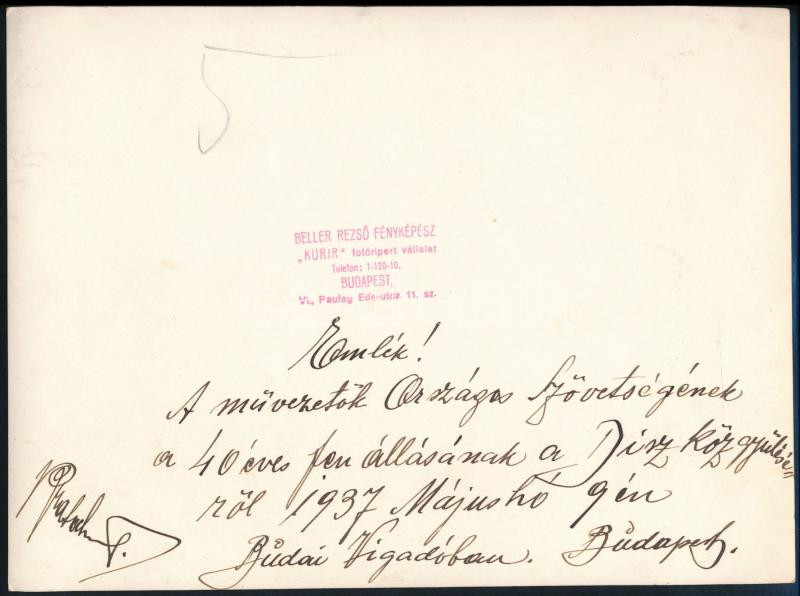 5
BELLER REZSŐ FÉNYKÉPÉSZ
„KURIR“ fotóripert vállalat
Telefon: 1-120-10.
BUDAPEST,
VI., Paulay Ede-utca 11. sz.
Emlék!
A müvezetők Országos Szövetségének
a 40 éves fen állásának a Disz közgyülésé-
ről 1937 Májushó 9én
Budai Vigadóban. Budapest.